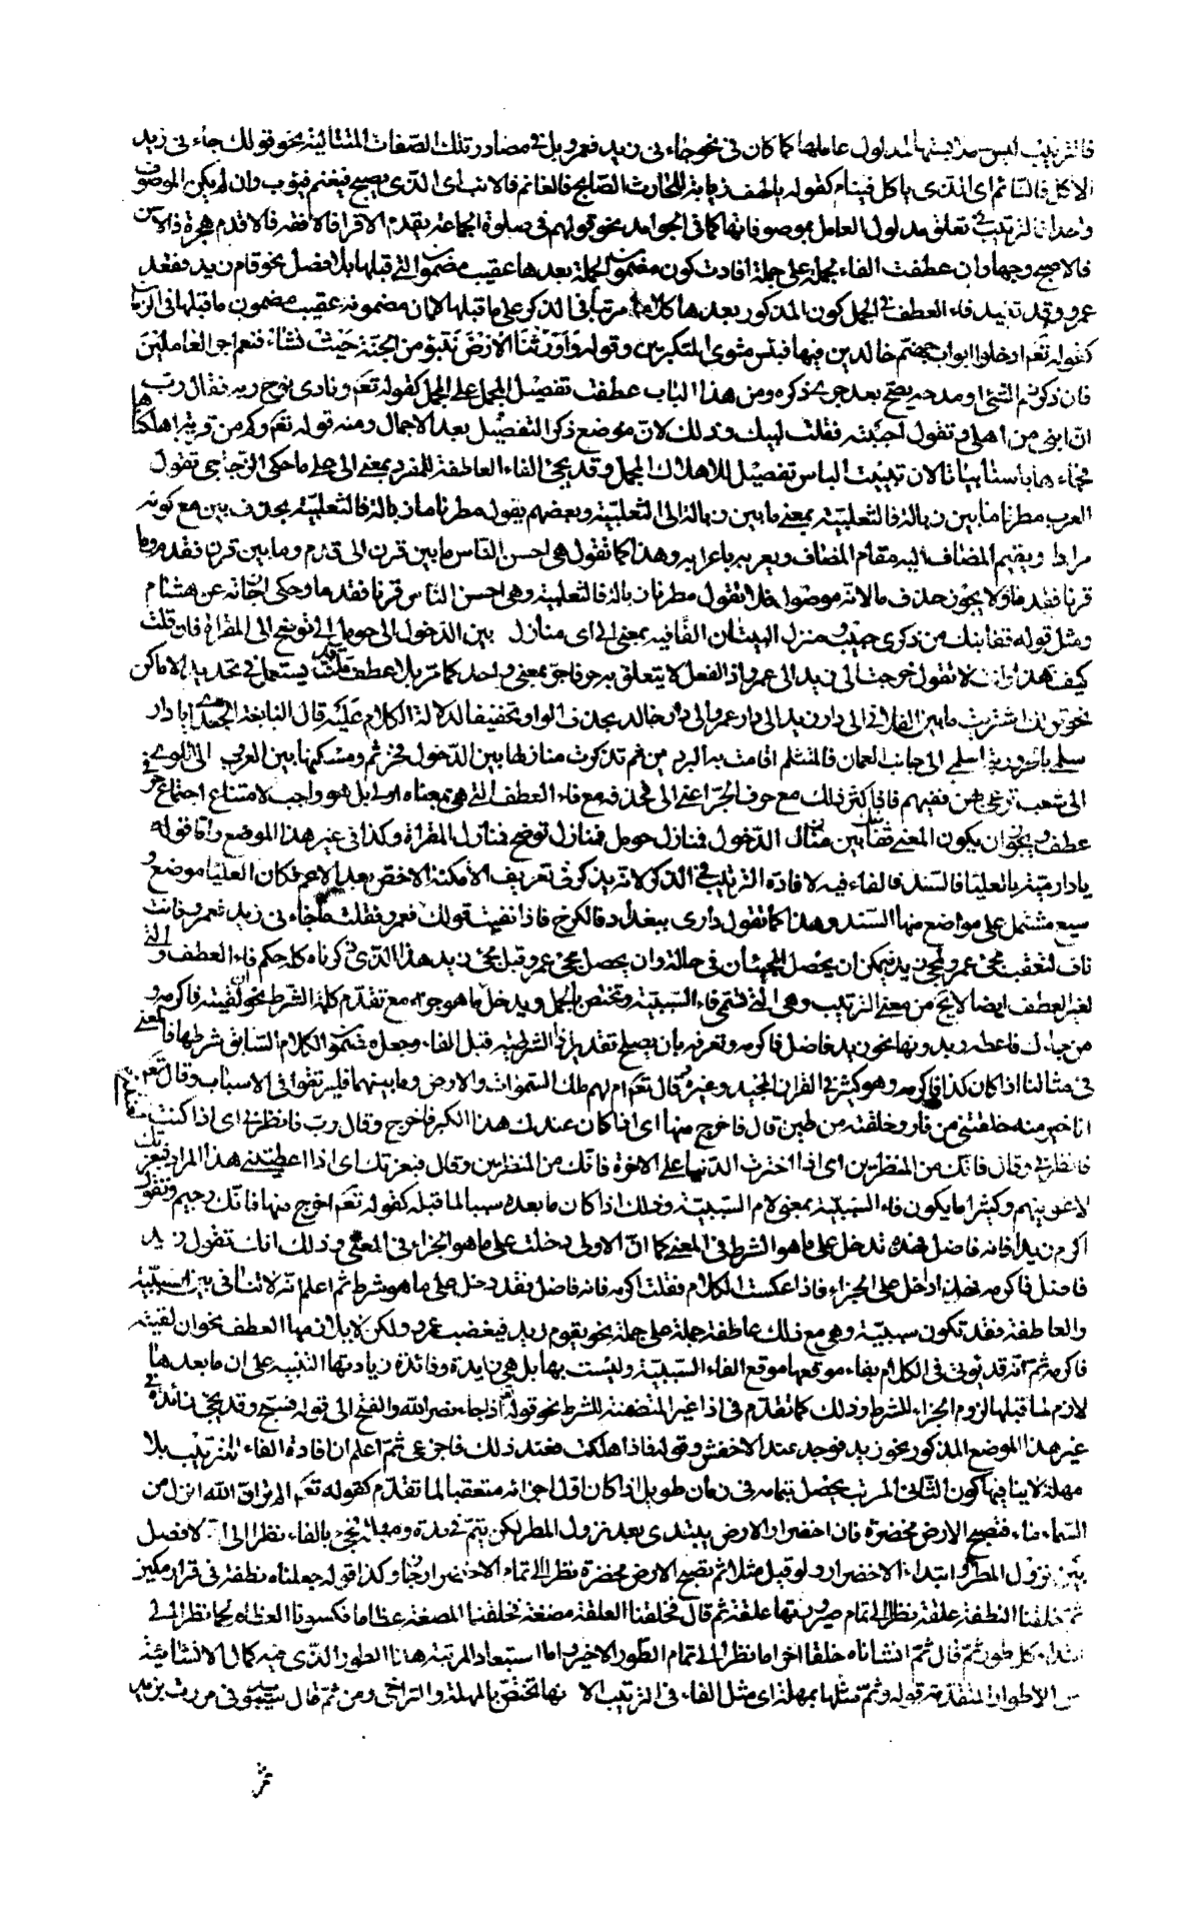 فالترتيب ليس ملابستها لمدلول عاملها كما كان في نحو جاءني زيد فعمرو بل في مصادر تلك الصفات المتتالية نحو قولك جاءني زيد
الآكل فالنائم اى الذى ياكل فينام كقوله يا لهف زيابة للحارث الصابح فالغانم فالآئب اى الذى يصبح فيغنم فيؤب وان لم يكن الموصوف
واحدا فالترتيب في تعلق مدلول العامل بموصوفاتها كما في الجوامد نحو قولهم في صلوة الجماعة يقدم الاقرأ فالافقه فالاقدم هجرة فالاسن
فالاصبح وجها وان عطفت الفاء جملة على جملة افادت كون مضمون الجملة بعدها عقيب مضمون التي قبلها بلا فصل نحو قام زيد فقعد
عمرو وقد تفيد فاء العطف في الجمل كون المذكور بعدها كلاما مرتبا في الذكر على ما قبلها لا ان مضمونه عقيب مضمون ما قبلها في الزمان
كقوله تعم ادخلوا ابواب جهنم خالدين فيها فبئس مثوى المتكبرين وقوله واورثنا الارض نتبوء من الجنة حيث نشاء فنعم اجر العاملين
فان ذكر ذم الشئ او مدحه يصح بعد جرى ذكره ومن هذا الباب عطف تفصيل المجمل على المجمل كقوله تعم ونادى نوح ربه فقال رب
ان ابني من اهلي وتقول اجبته فقلت لبيك وذلك لان موضع ذكر التفصيل بعد الاجمال ومنه قوله تعم وكم من قرية اهلكناها
فجاءها بأسنا بياتا لان تبييت البأس تفصيل للاهلاك المجمل وقد يجئ الفاء العاطفة للمفرد بمعنى الى على ما حكى الزجاجى تقول
العرب مطرنا ما بين زبالة فالثعلبية بمعنى ما بين زبالة الى الثعلبية وبعضهم يقول مطرنا ما زبالة فالثعلبية بحذف بين مع كونه
مرادا ويقيم المضاف اليه مقام المضاف ويعربه باعرابه وهذا كما تقول هي احسن الناس ما بين قرن الى قدم وما بين قرنا فقدم وما
قرنا فقدما ولا يجوز حذف ما لانه موصول فلا تقول مطرنا زبالة فالثعلبية وهي احسن الناس قرنا فقدما وحكى اجازته عن هشام
ومثل قوله قفا نبك من ذكرى حبيب ومنزل البيتان الفاء فيه بمعنى الى اى منازل بين الدخول الى حومل الى توضح الى المقراة فان قلت
كيف هذا وانت لا تقول خرجت الى زيد الى عمرو اذ الفعل لا يتعلق به حرفا جر بمعنى واحد كما مر بلا عطف قلت قد يستعمل في تحديد الاماكن
نحو قولك اشتريت ما بين الفلاني الى دار زيد الى دار عمرو الى دار خالد بحذف الواو تخفيفا لدلالة الكلام عليه قال النابغة الجعدى ايا دار
سلمى اسلمى الى جانب الصمان فالمتثلم اقامت به البردين ثم تذكرت منازلها بين الدخول فجرثم ومسكنها بين العروب الى اللوى
الى شعب ترعى بهن فعيهم فاذا كثر ذلك مع حرف الجر اعنى الى فحذفه مع فاء العطف التي هي بمعناه اولى بل هو واجب لامتناع اجتماع حرفي
عطف ويجوز ان يكون المعنى قفا نبك بين منازل الدخول فمنازل حومل فمنازل توضح فمنازل المقراة وكذا في غير هذا الموضع واما قوله
يا دار مية بالعلياء فالسند فالفاء فيه لافادة الترتيب في الذكر لانه يذكر في تعريف الامكنة الاخص بعد الاعم فكان العلياء موضع
وسيع مشتمل على مواضع منها السند وهذا كما تقول دارى ببغداد فالكرخ فاذا نفيت قولك فعمرو فقلت ما جاءني زيد فعمرو فانت
ناف لتعقب مجئ عمرو لمجئ زيد فيمكن ان يحصل المجيئان في حالة وان يحصل مجئ عمرو قبل مجئ زيد هذا الذى ذكرناه كله حكم فاء العطف والتي
لغير العطف ايضا لا تخ من معنى الترتيب وهي التي تسمى فاء السببية وتختص بالجمل ويدخل ما هو جزاء مع تقدم كلمة الشرط نحو ان لقيته فاكرمه و
من جاءك فاعطه وبدونها نحو زيد فاضل فاكرمه وتعرفه بان يصلح تقدير اذا الشرطية قبل الفاء وجعل مضمون الكلام السابق شرطها فالمعنى
في مثالنا اذا كان كذا فاكرمه وهو كثير في القران المجيد وغيره قال تعم ام لهم ملك السموات والارض وما بينهما فليرتقوا في الاسباب وقال تعم
انا خير منه خلقتني من نار وخلقته من طين قال فاخرج منها اى اذا كان عندك هذا الكبر فاخرج وقال رب فانظرنى اى اذا كنت لعنتنى
فانظرنى وقال فانك من المنظرين اى اذا اخترت الدنيا على الاخرة فانك من المنظرين وقال فبعزتك اى اذا اعطيتنى هذا المراد فبعزتك
لاغوينهم وكثيرا ما يكون فاء السببية بمعنى لام السببية وذلك اذا كان ما بعده سببا لما قبله كقوله تعم اخرج منها فانك رجيم وتقول
اكرم زيدا فانه فاضل فهذه تدخل على ما هو الشرط في المعنى كما ان الاولى دخلت على ما هو الجزاء في المعنى وذلك انك تقول زيد
فاضل فاكرمه فهذا دخل على الجزاء فاذا عكست الكلام فقلت اكرمه فانه فاضل فقد دخل على ما هو شرط ثم اعلم انه لا تنافى بين السببية
والعاطفة فقد تكون سببية وهي مع ذلك عاطفة جملة على جملة نحو يقوم زيد فيغضب عمرو ولكن لا يلازمها العطف نحو ان لقيته
فاكرمه ثم انه قد يؤتى في الكلام بفاء موقعها موقع الفاء السببية وليست بها بل هي زايدة وفائدة زيادتها التنبيه على ان ما بعدها
لازم لما قبلها لزوم الجزاء للشرط وذلك كما تقدم في اذا غير المتضمنة للشرط نحو قوله تعم اذا جاء نصر الله والفتح الى قوله فسبح وقد يجئ زائدة في
غير هذا الموضع المذكور نحو زيد فوجد عند الاخفش وقوله فاذا هلكت فعند ذلك فاجزعى ثم اعلم ان افادة الفاء للترتيب بلا
مهلة لا ينافيها كون الثاني المرتب يحصل بتمامه في زمان طويل اذا كان اول اجزائه متعقبا لما تقدم كقوله تعم الم تر ان الله انزل من
السماء ماء فتصبح الارض مخضرة فان اخضرار الارض يبتدى بعد نزول المطر لكن يتم في مدة ومهلة فجئ بالفاء نظرا الى انه لا فصل
بين نزول المطر وابتداء الاخضرار ولو قيل مثلا ثم تصبح الارض مخضرة نظرا الى تمام الاخضرار جاز وكذا قوله جعلناه نطفة في قرار مكين
ثم خلقنا النطفة علقة نظرا الى تمام صيرورتها علقة ثم قال فخلقنا العلقة مضغة فخلقنا المضغة عظاما فكسونا العظام لحما نظرا الى
ابتداء كل طور ثم قال ثم انشاناه خلقا اخر اما نظرا الى تمام الطور الاخير واما استبعادا لمرتبة هذا الطور الذى فيه كمال الانسانية
من الاطوار المتقدمة قوله وثم مثلها بمهلة اى مثل الفاء في الترتيب الا انها تختص بالمهلة والتراخى ومن ثم قال سيبويه في مررت بزيد